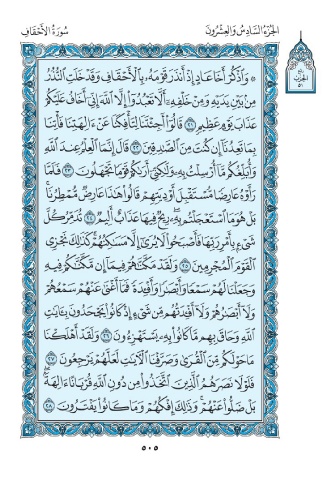 الجزء السادس والعشرون
سورة الأحقاف
۞ وَٱذْكُرْ أَخَا عَادٍ إِذْ أَنذَرَ قَوْمَهُۥ بِٱلْأَحْقَافِ وَقَدْ خَلَتِ ٱلنُّذُرُ
مِنۢ بَيْنِ يَدَيْهِ وَمِنْ خَلْفِهِۦٓ أَلَّا تَعْبُدُوٓا۟ إِلَّا ٱللَّهَ إِنِّىٓ أَخَافُ عَلَيْكُمْ
عَذَابَ يَوْمٍ عَظِيمٍ ٢١ قَالُوٓا۟ أَجِئْتَنَا لِتَأْفِكَنَا عَنْ ءَالِهَتِنَا فَأْتِنَا
بِمَا تَعِدُنَآ إِن كُنتَ مِنَ ٱلصَّٰدِقِينَ ٢٢ قَالَ إِنَّمَا ٱلْعِلْمُ عِندَ ٱللَّهِ
وَأُبَلِّغُكُم مَّآ أُرْسِلْتُ بِهِۦ وَلَٰكِنِّىٓ أَرَىٰكُمْ قَوْمًا تَجْهَلُونَ ٢٣ فَلَمَّا
رَأَوْهُ عَارِضًا مُّسْتَقْبِلَ أَوْدِيَتِهِمْ قَالُوا۟ هَٰذَا عَارِضٌ مُّمْطِرُنَا ۚ
بَلْ هُوَ مَا ٱسْتَعْجَلْتُم بِهِۦ ۖ رِيحٌ فِيهَا عَذَابٌ أَلِيمٌ ٢٤ تُدَمِّرُ كُلَّ
شَىْءٍۭ بِأَمْرِ رَبِّهَا فَأَصْبَحُوا۟ لَا يُرَىٰٓ إِلَّا مَسَٰكِنُهُمْ ۚ كَذَٰلِكَ نَجْزِى
ٱلْقَوْمَ ٱلْمُجْرِمِينَ ٢٥ وَلَقَدْ مَكَّنَّٰهُمْ فِيمَآ إِن مَّكَّنَّٰكُمْ فِيهِ
وَجَعَلْنَا لَهُمْ سَمْعًا وَأَبْصَٰرًا وَأَفْـِٔدَةً فَمَآ أَغْنَىٰ عَنْهُمْ سَمْعُهُمْ
وَلَآ أَبْصَٰرُهُمْ وَلَآ أَفْـِٔدَتُهُم مِّن شَىْءٍ إِذْ كَانُوا۟ يَجْحَدُونَ بِـَٔايَٰتِ
ٱللَّهِ وَحَاقَ بِهِم مَّا كَانُوا۟ بِهِۦ يَسْتَهْزِءُونَ ٢٦ وَلَقَدْ أَهْلَكْنَا
مَا حَوْلَكُم مِّنَ ٱلْقُرَىٰ وَصَرَّفْنَا ٱلْـَٔايَٰتِ لَعَلَّهُمْ يَرْجِعُونَ ٢٧
فَلَوْلَا نَصَرَهُمُ ٱلَّذِينَ ٱتَّخَذُوا۟ مِن دُونِ ٱللَّهِ قُرْبَانًا ءَالِهَةًۢ ۖ
بَلْ ضَلُّوا۟ عَنْهُمْ ۚ وَذَٰلِكَ إِفْكُهُمْ وَمَا كَانُوا۟ يَفْتَرُونَ ٢٨
٥٠٥